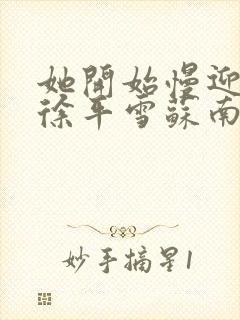 她開始慢迎
徐平雪蘇南
妙手摘星1